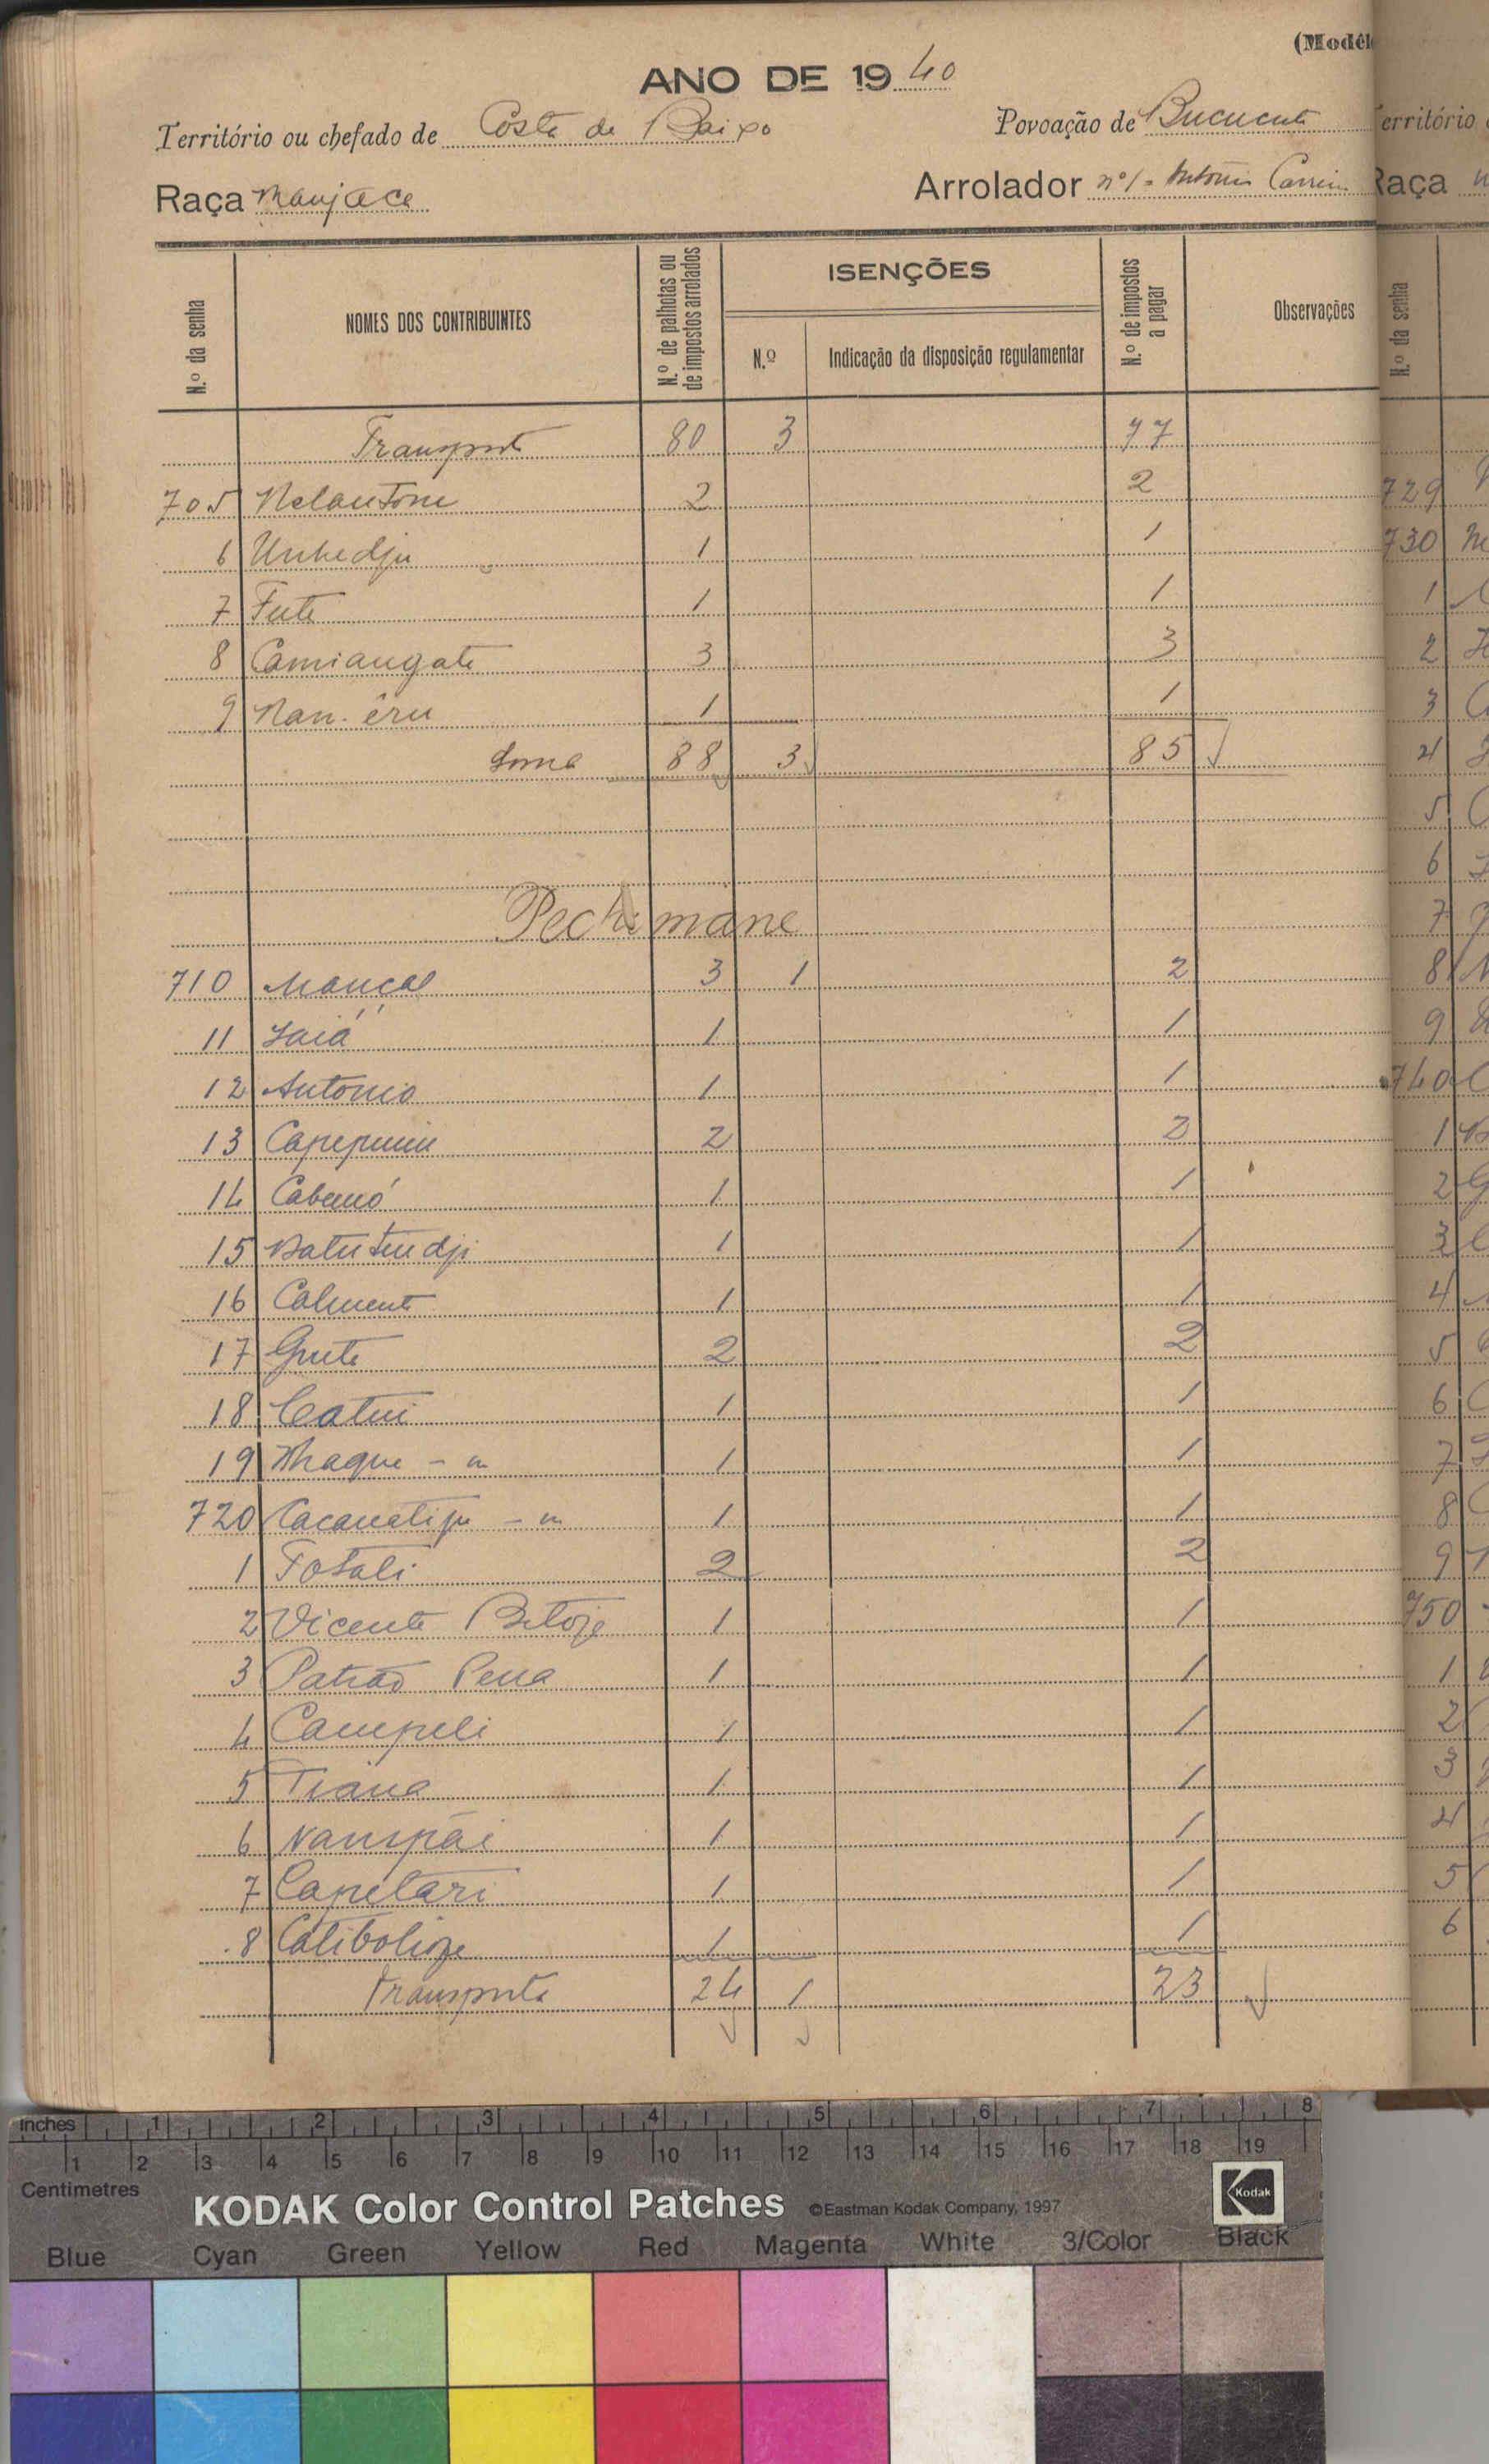 (Modêl
ANO DE 19 40
Território ou chefado de Costa de Baixo
Povoação de Bucucute
Raça Manjaca
Arrolador nº 1 - António Carrei
N.º da senha
NOMES DOS CONTRIBUINTES
N.º de palhotas ou de impostos arrolados
ISENÇÕES
N.º
Indicação da disposição regulamentar
N.º de impostos a pagar
Observações
Transporte 80 3 77
705 2 2
6 Unhedju 1 1
7 Fute 1 1
8 Camiangate 3 3
9 Nan-êru 1 1
Soma 88 3 85
Pechimane
710 Mançal 3 1 2
11 Jaiá 1 1
12 Antonio 1 1
13 2 2
14 1 1
15 1 1
16 1 1
17 2 2
18 Catui 1 1
19 Nhaque - m 1 1
720 - m 1 1
1 Fotali 2 2
2 Vicente 1 1
3 Patrão Pena 1 1
4 Campeli 1 1
5 Tiana 1 1
6 Nampái 1 1
7 Capetari 1 1
8 1 1
Transporte 24 1 23
erritório
Raça
N.º da senha
729
730
1
2
3
4
5
6
7
8
9
740
1
2
3
4
5
6
7
8
9
750
1
2
3
4
5
6
inches 1 2 3 4 5 6 7 8
1 2 3 4 5 6 7 8 9 10 11 12 13 14 15 16 17 18 19
Centimetres
KODAK Color Control Patches ©Eastman Kodak Company, 1997
Kodak
Blue Cyan Green Yellow Red Magenta White 3/Color Black